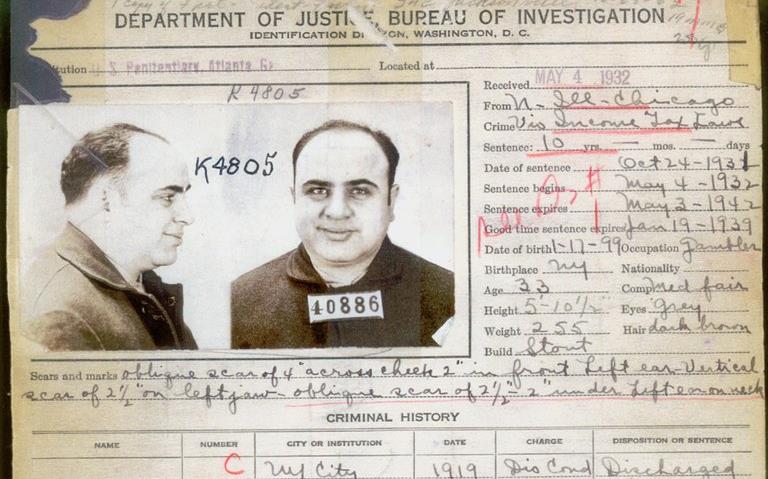 1 copy of
DEPARTMENT OF JUSTICE, BUREAU OF INVESTIGATION
IDENTIFICATION DIVISION, WASHINGTON, D. C.
U S Penitentiary, Atlanta Ga
Located at
K 4805
K4805
40886
Received MAY 4 1932
From N- Ill-Chicago
Crime Vio Income Tax Laws
Sentence: 10 yrs. — mos. — days
Date of sentence Oct 24-1931
Sentence begins May 4-1932
Sentence expires May 3-1942
Good time sentence expires Jan 19-1939
Date of birth 1-17-99 Occupation Gambler
Birthplace NY Nationality
Age 33 Comp Med fair
Height 5'-10 1/2" Eyes Grey
Weight 255 Hair dark brown
Build Stout
Scars and marks oblique scar of 4" across cheek 2" in front Left ear-Vertical
scar of 2 1/2" on left jaw- oblique scar of 2 1/2"- 2" under Left ear on neck
CRIMINAL HISTORY
NAME NUMBER CITY OR INSTITUTION DATE CHARGE DISPOSITION OR SENTENCE
C NY City 1919 Dis Cond Discharged